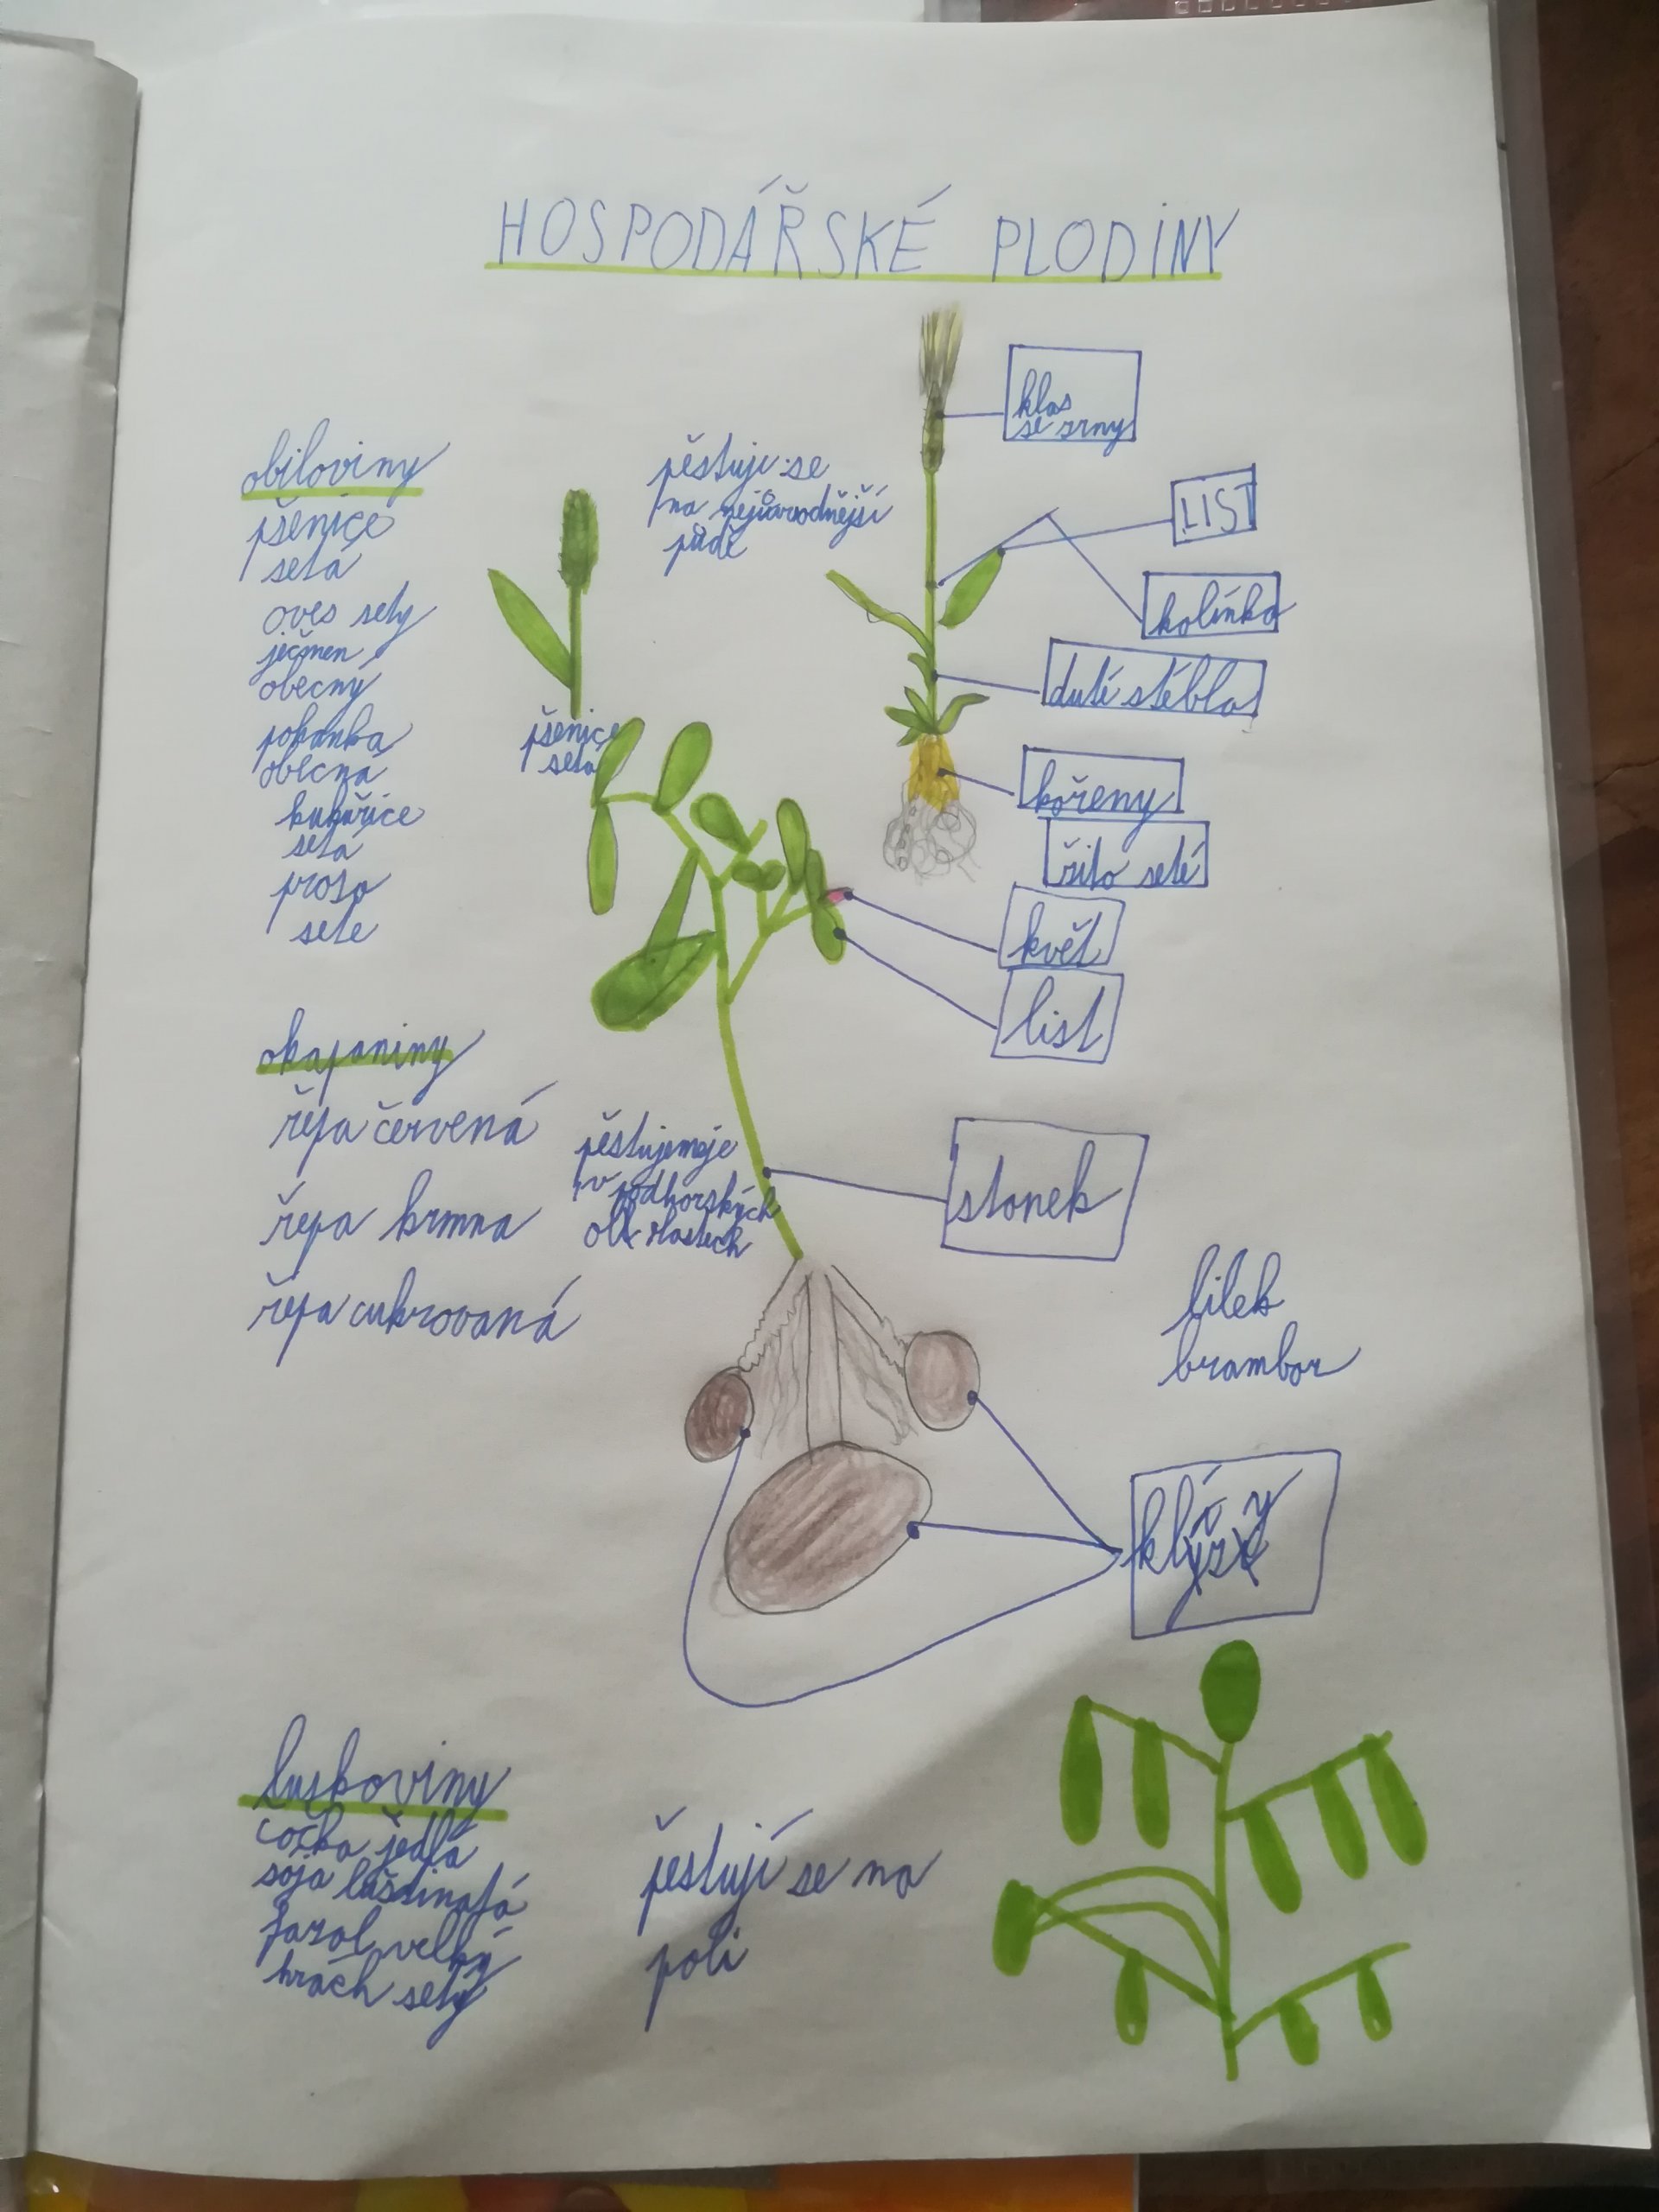 HOSPODÁŘSKÉ PLODINY
obiloviny
pšenice
setá
oves setý
ječmen
obecný
pohanka
obecná
kukuřice
setá
proso
seté
pšenice
setá
pěstuji se
na nejúrodnější
půdě
klas
se zrny
LIST
kolínko
duté stéblo
kořeny
žito seté
květ
list
okapaniny
řepa červená
řepa krmna
řepa cukrovaná
pěstujemeje
v podhorských
oblastech
stonek
lilek
brambor
klíčky
luskoviny
čočka jedlá
sója luštinatá
fazol velký
hrách setý
pěstují se na
poli